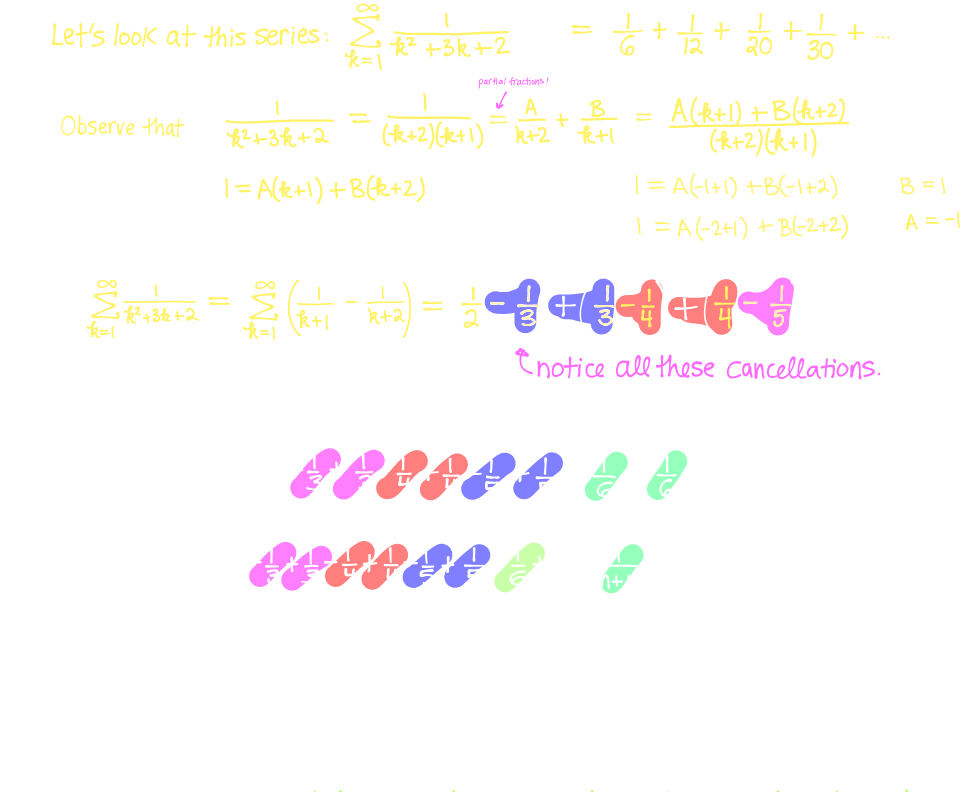 Let's look at this series: ∑_{k=1}^{∞} 1/(k² + 3k + 2) = 1/6 + 1/12 + 1/20 + 1/30 + ...
partial fractions!
Observe that 1/(k² + 3k + 2) = 1/((k+2)(k+1)) = A/(k+2) + B/(k+1) = (A(k+1) + B(k+2))/((k+2)(k+1))
1 = A(k+1) + B(k+2) 1 = A(-1+1) + B(-1+2) B = 1
1 = A(-2+1) + B(-2+2) A = -1
∑_{k=1}^{∞} 1/(k²+3k+2) = ∑_{k=1}^{∞} (1/(k+1) - 1/(k+2)) = 1/2 - 1/3 + 1/3 - 1/4 + 1/4 - 1/5
notice all these cancellations.
1/3 + 1/3 1/4 + 1/4 - 1/5 + 1/5 1/6 1/6
1/3 + 1/3 - 1/4 + 1/4 - 1/5 + 1/5 1/6 +